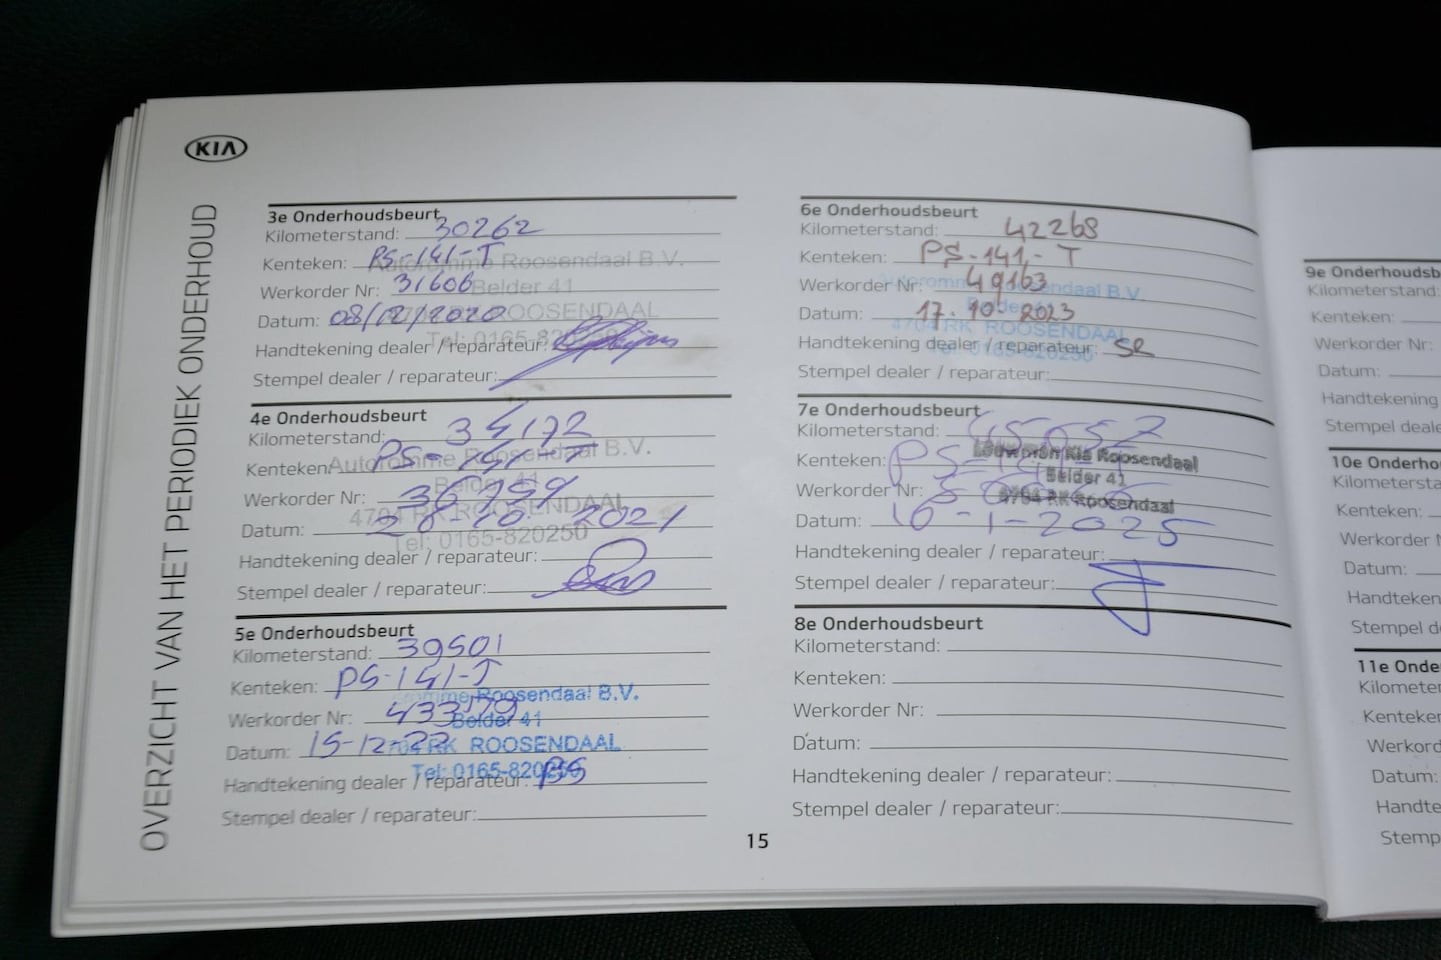 KIA
OVERZICHT VAN HET PERIODIEK ONDERHOUD
3e Onderhoudsbeurt
Kilometerstand: 30262
Kenteken: PS-141-T
Autoromme Roosendaal B.V.
Werkorder Nr: 31606
Belder 41
Datum: 08/12/2020
4704 RK ROOSENDAAL
Tel: 0165-820250
Handtekening dealer / reparateur:
Stempel dealer / reparateur:
4e Onderhoudsbeurt
Kilometerstand: 34172
Kenteken: PS-141-T
Autoromme Roosendaal B.V.
Belder 41
Werkorder Nr:
4704 RK ROOSENDAAL
Datum: 2021
Tel: 0165-820250
Handtekening dealer / reparateur:
Stempel dealer / reparateur:
5e Onderhoudsbeurt
Kilometerstand: 39501
Kenteken: PS-141-T
Roosendaal B.V.
Werkorder Nr:
Belder 41
Datum: 15-12-22
RK ROOSENDAAL
Tel: 0165-820250
Handtekening dealer / reparateur: BS
Stempel dealer / reparateur:
6e Onderhoudsbeurt
Kilometerstand: 42268
Kenteken: PS-141-T
Werkorder Nr: 49163
Autoromme Roosendaal B.V.
Belder 41
Datum: 17-10-2023
4704 RK ROOSENDAAL
Handtekening dealer / reparateur: SR
Tel: 0165-820250
Stempel dealer / reparateur:
7e Onderhoudsbeurt
Kilometerstand: 45652
Kenteken: PS-141-T
Louwman Kia Roosendaal
Belder 41
Werkorder Nr:
4704 RK Roosendaal
Datum: 16-1-2025
Handtekening dealer / reparateur:
Stempel dealer / reparateur:
8e Onderhoudsbeurt
Kilometerstand:
Kenteken:
Werkorder Nr:
Datum:
Handtekening dealer / reparateur:
Stempel dealer / reparateur:
15
9e Onderhoudsb
Kilometerstand:
Kenteken:
Werkorder Nr:
Datum:
Handtekening
Stempel deale
10e Onderho
Kilometersta
Kenteken:
Werkorder N
Datum:
Handteken
Stempel d
11e Onde
Kilometer
Kenteker
Werkord
Datum:
Handte
Stemp